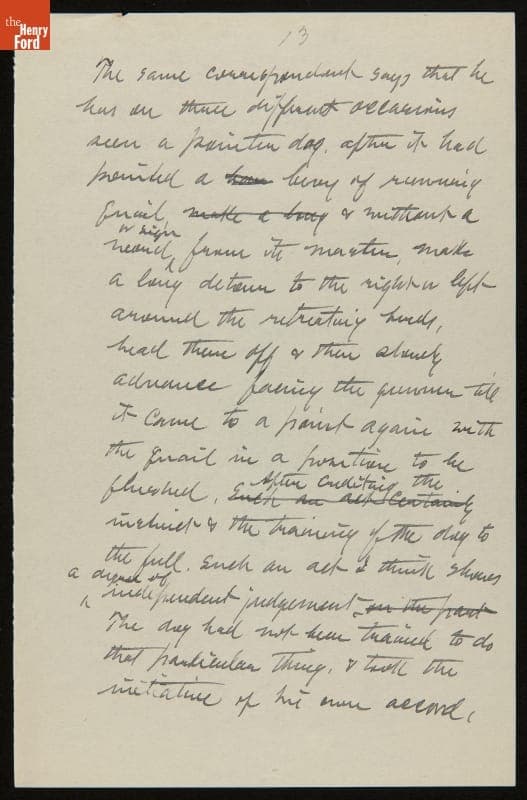 the Henry Ford
13
The same correspondent says that he
has on three different occasions
seen a pointer dog, after it had
pointed a bevy of running
quail, make a long & without a
or sign
word, from its master, make
a long detour to the right or left
around the retreating birds,
head them off & then slowly
advance facing the gunner till
it came to a point again with
the quail in a position to be
After crediting the
flushed. Such an act certainly
instinct & the training of the dog to
the full. Such an act I think shows
a degree of
independent judgement, on the part
The dog had not been trained to do
that particular thing, & took the
initiative of his own accord,